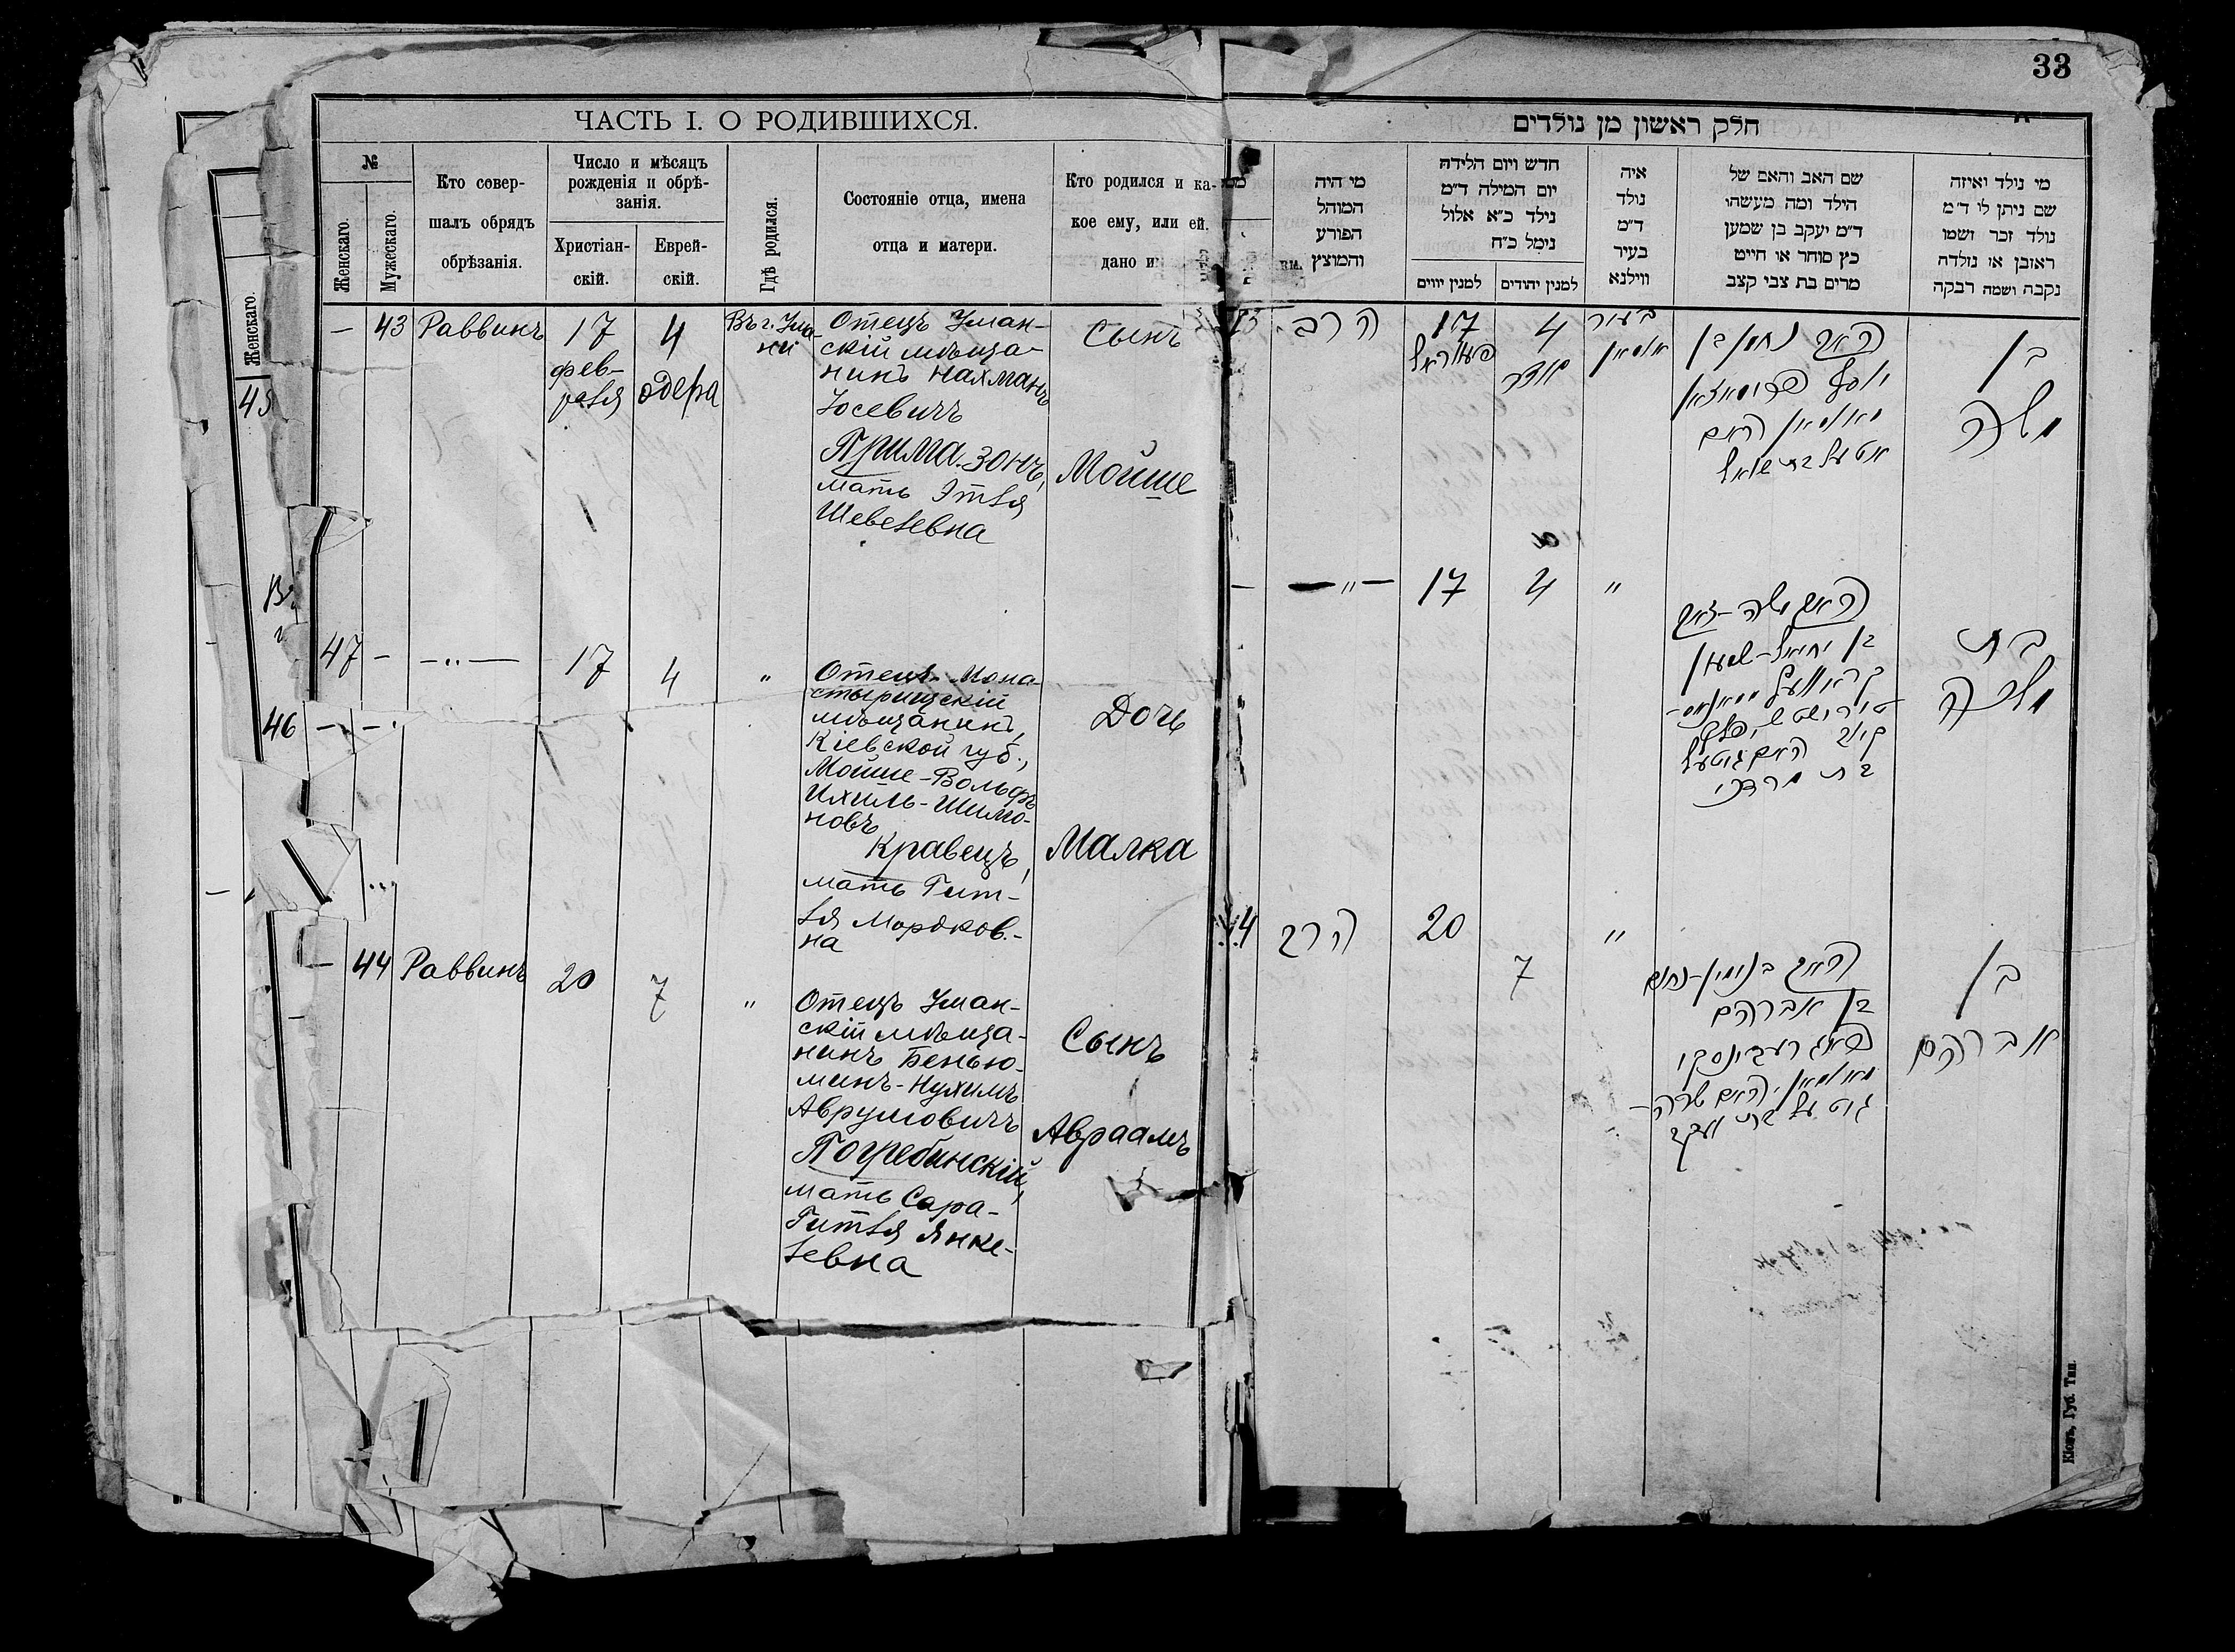 33
ЧАСТЬ I. О РОДИВШИХСЯ.
№
Женскаго.
Мужескаго.
Кто совер-
шалъ обрядъ
обрѣзанія.
Число и мѣсяцъ
рожденія и обрѣ-
занія.
Христіан-
скій.
Еврей-
скій.
Гдѣ родился.
Состояніе отца, имена
отца и матери.
Кто родился и ка-
кое ему, или ей.
дано и
Женскаго.
45
46
— 43 Раввинъ
17
фев-
раля
4
одера
Въ г. Ума-
ни
Отецъ Уман-
скій мѣща-
нинъ Нахманъ
Іосевичъ
Примазонъ,
мать Этля
Шевелевна
Сынъ
Мойше
47 — —"—
17
4
"
Отецъ Мона-
стырищскій
мѣщанинъ,
Кіевской губ.,
Мойше-Вольфъ
Ихиль-Шимо-
новъ
Кравецъ,
мать Гит-
ля Мордков-
на
Дочь
Малка
— 44 Раввинъ
20
7
"
Отецъ Уман-
скій мѣща-
нинъ Бенью-
минъ-Нухимъ
Аврумовичъ
Погребинскій,
мать Сара-
Гитля Янке-
левна
Сынъ
Авраамъ
חלק ראשון מן נולדים
מי היה
המוהל
הפורע
והמוצץ
חדש ויום הלידה
יום המילה ד״מ
נילד כ״א אלול
נימל כ״ח
למנין יווים
למנין יהודים
איה
נולד
ד״מ
בעיר
ווילנא
שם האב והאם של
הילד ומה מעשהו
ד״מ יעקב בן שמען
כץ סוחר או חייט
מרים בת צבי קצב
מי נולד ואיזה
שם ניתן לו ד״מ
נולד זכר ושמו
ראובן או נולדה
נקבה ושמה רבקה
הרב
17
פעווראל
4
אדר
בעיר
אומאן
האב נחמן בן
יוסף פרימאזאן
מאומאן האם
אטעל בת שאול
בן
משה
— —"—
17
4
"
האב משה-זאב
בן יחיאל-שמעון
קראוועץ מאנאס-
טירישטש, פלך
קיוב האם גיטעל
בת מרדכי
בת
מלכה
הרב
20
7
"
האב בנימין-נחום
בן אברהם
פאגרעבינסקי
מאומאן, האם שרה-
גיטעל בת יעקב
בן
אברהם
Кіевъ, Губ. Тип.